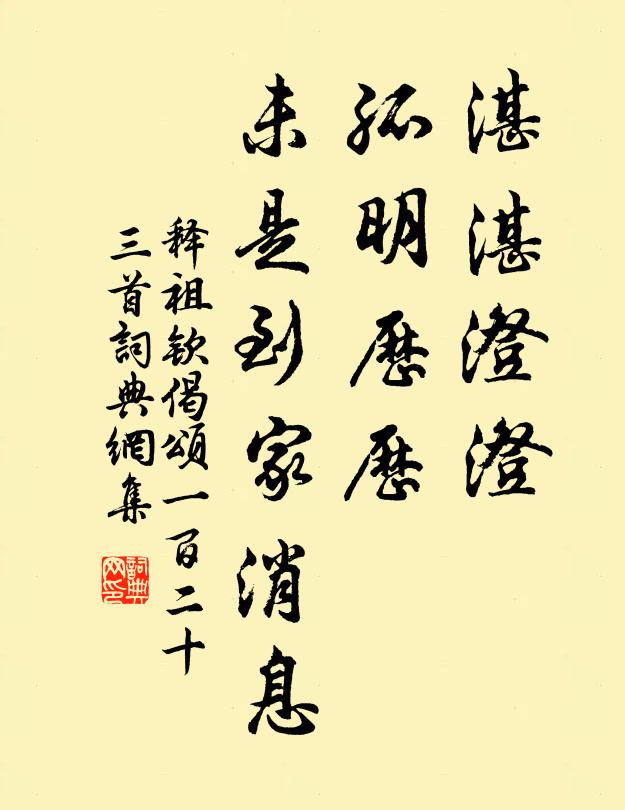 湛湛澄澄
孤明歷歷
未是到家消息
释祖欽偈頌一百二十
三首詞典網集
詞典
网印